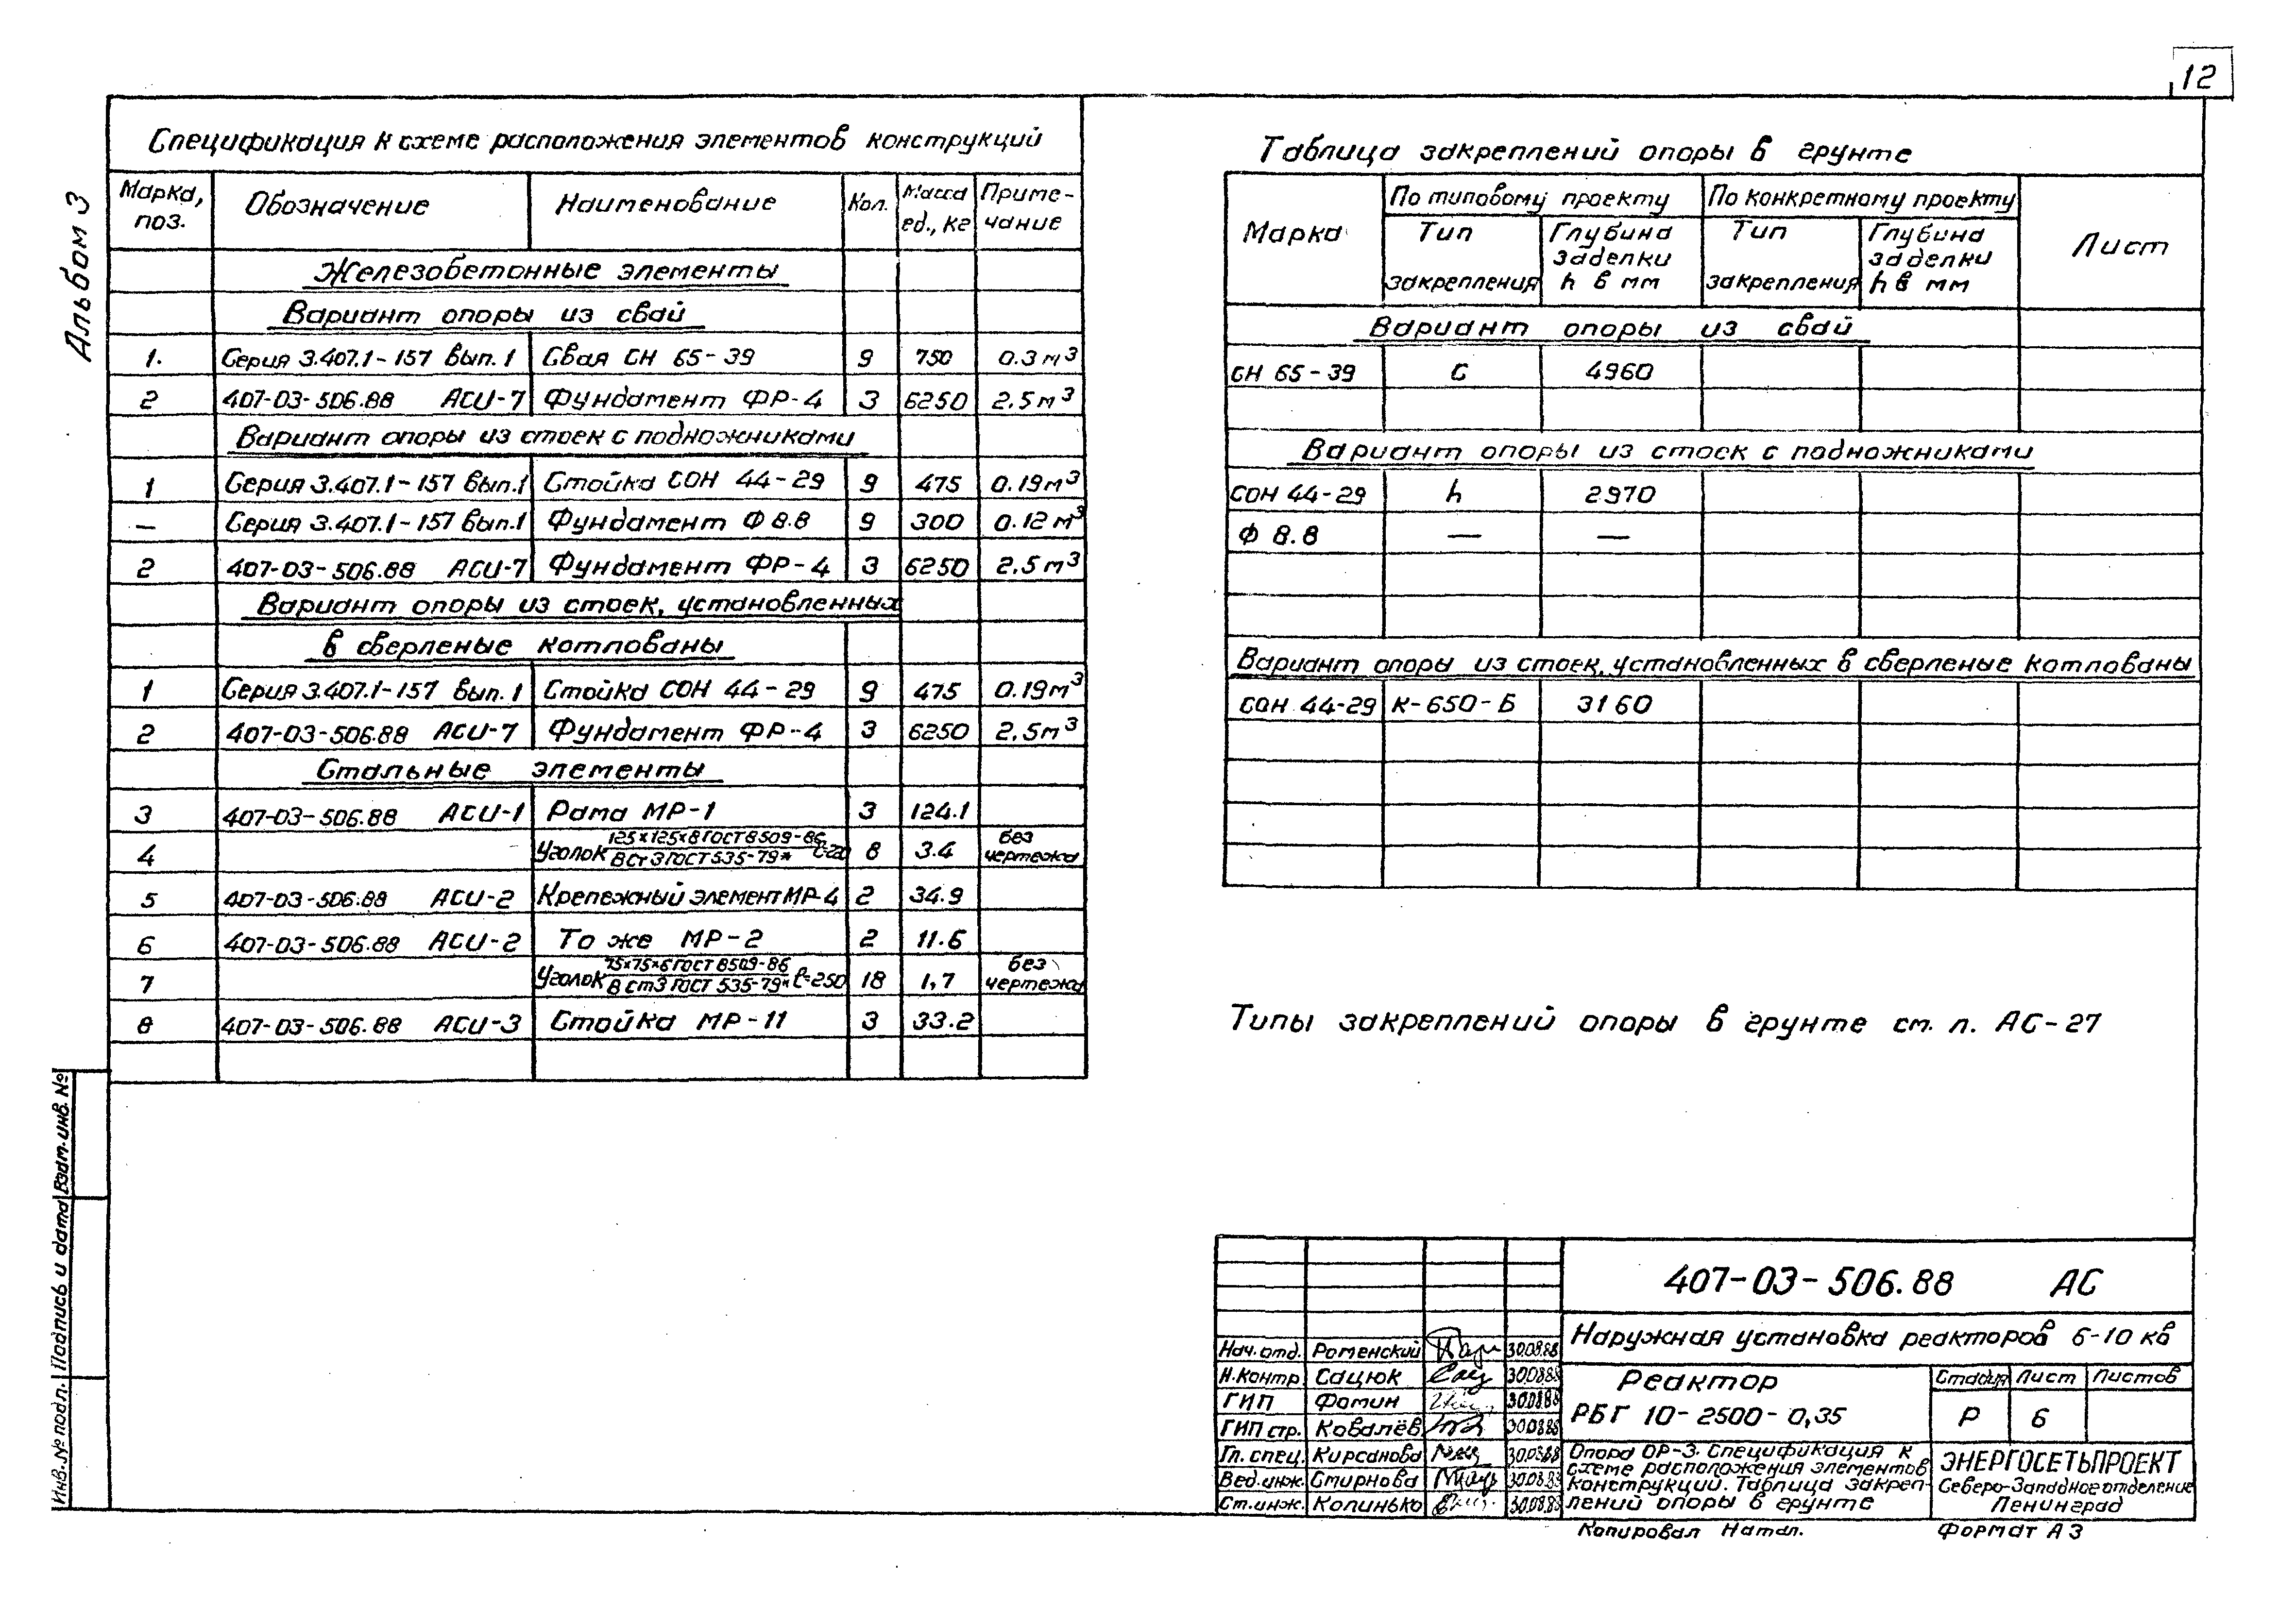 12
Альбом 3
Спецификация к схеме расположения элементов конструкций
Марка, поз. Обозначение Наименование Кол. Масса ед., кг Примечание
Железобетонные элементы
Вариант опоры из свай
1. Серия 3.407.1-157 вып. 1 Свая СН 65-39 9 750 0.3 м³
2 407-03-506.88 АСИ-7 Фундамент ФР-4 3 6250 2.5 м³
Вариант опоры из стоек с подножниками
1 Серия 3.407.1-157 вып.1 Стойка СОН 44-29 9 475 0.19 м³
— Серия 3.407.1-157 вып.1 Фундамент Ф 8.8 9 300 0.12 м³
2 407-03-506.88 АСИ-7 Фундамент ФР-4 3 6250 2.5 м³
Вариант опоры из стоек, установленных
в сверленые котлованы
1 Серия 3.407.1-157 вып. 1 Стойка СОН 44-29 9 475 0.19 м³
2 407-03-506.88 АСИ-7 Фундамент ФР-4 3 6250 2.5 м³
Стальные элементы
3 407-03-506.88 АСИ-1 Рама МР-1 3 124.1
4 Уголок 125×125×8 ГОСТ 8509-86 / ВСт 3 ГОСТ 535-79* 8 3.4 без чертежа
5 407-03-506.88 АСИ-2 Крепежный элемент МР-4 2 34.9
6 407-03-506.88 АСИ-2 То же МР-2 2 11.6
7 Уголок 75×75×6 ГОСТ 8509-86 / В ст3 ГОСТ 535-79* ℓ=250 18 1,7 без чертежа
8 407-03-506.88 АСИ-3 Стойка МР-11 3 33.2
Таблица закреплений опоры в грунте
Марка По типовому проекту По конкретному проекту Лист
Тип закрепления Глубина заделки h в мм Тип закрепления Глубина заделки h в мм
Вариант опоры из свай
СН 65-39 С 4960
Вариант опоры из стоек с подножниками
СОН 44-29 h 2970
Ф 8.8 — —
Вариант опоры из стоек, установленных в сверленые котлованы
СОН 44-29 К-650-Б 3160
Типы закреплений опоры в грунте см. л. АС-27
Инв. № подл. Подпись и дата Взам. инв. №
407-03-506.88 АС
Наружная установка реакторов 6-10 кв
Нач. отд. Роменский 30.08.88
Н. контр. Сацюк 30.08.88
ГИП Фомин 30.08.88
ГИП стр. Ковалёв 30.08.88
Гл. спец. Кирсанова 30.08.88
Вед. инж. Смирнова 30.08.88
Ст. инж. Колинько 30.08.88
Реактор
РБГ 10-2500-0,35
Стадия Лист Листов
Р 6
Опора ОР-3. Спецификация к
схеме расположения элементов
конструкций. Таблица закреп-
лений опоры в грунте
ЭНЕРГОСЕТЬПРОЕКТ
Северо-Западное отделение
Ленинград
Копировал Натал. Формат А3